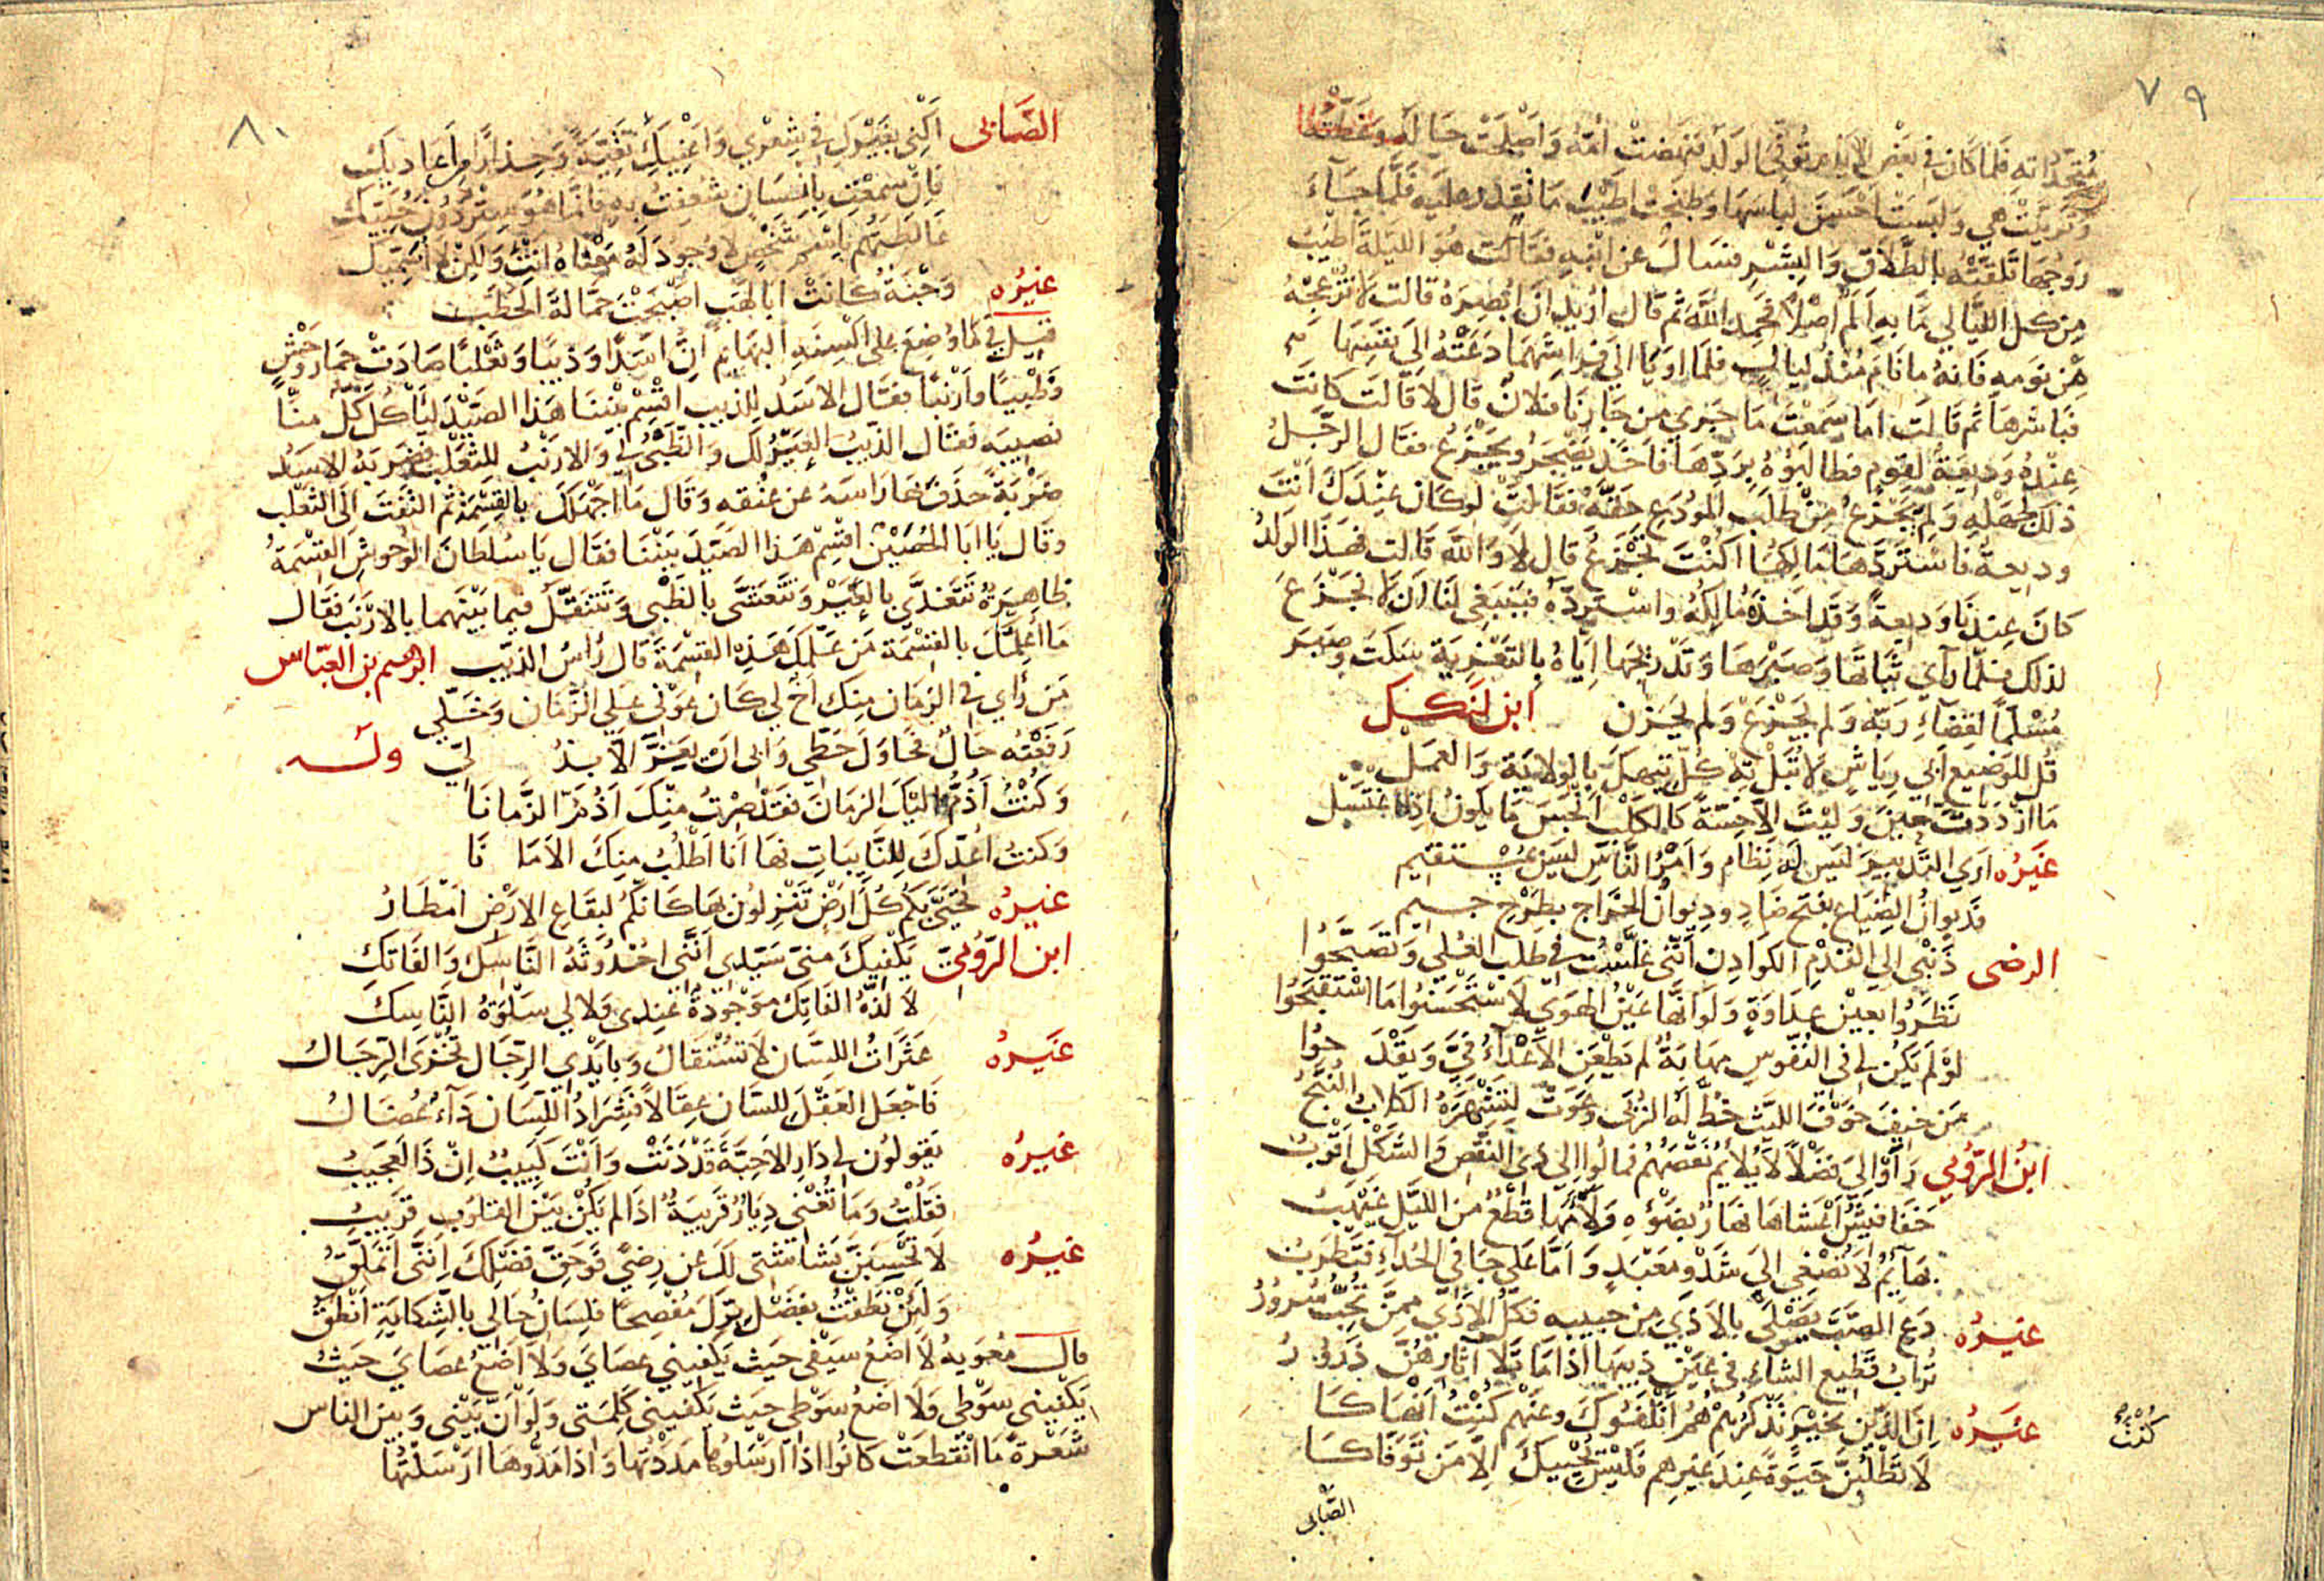 ٧٩
متجداته فلما كان في بعض الايام توفي الولد فنهضت أمه وأصلحت حاله وغطته
وتزينت هي ولبست احسن لباسها وطبخت اطيب ما تقدر عليه فلما جاء
زوجها تلقته بالطلاق والبشر فسأل عن ابنه فقالت هو الليلة اطيب
من كل الليالي ما به ألم اصلا فحمد الله ثم قال اريد ان ابصره قالت لا تزعجه
من نومه فانه ما نام منذ ليال فلما اويا الى فراشهما دعته الى نفسها
فباشرها ثم قالت اما سمعت ما جرى من جارنا فلان قال لا قالت كانت
عنده وديعة لقوم فطالبوه بردها فأخذ يضجر ويجزع فقال الرجل
ذلك لجهله ولم يجزع من طلب المودع حقه فقالت لو كان عندك أنت
وديعة فاستردها مالكها اكنت تجزع قال لا والله قالت فهذا الولد
كان عندنا وديعة وقد اخذه مالكه واسترده فينبغي لنا ان لا نجزع
لذلك فلما رآي ثباتها وصبرها وتدريجها اياه بالتعزية سكت وصبر
مسلما لقضاء ربه ولم يجزع ولم يحزن ابن لنكك
قل للوضيع ابي رياش لا تبل ته كل تيهك بالولاية والعمل
ما ازددت حين وليت الا خسة كالكلب انجس ما يكون اذا اغتسل
غيره اري التدبير ليس له نظام وأمر الناس ليس بمستقيم
فديوان الضياع بفتح ضاد وديوان الخراج بطرح جيم
الرضى ذنبي الي القدم الكوادن انني غلست في طلب العلي وتصبحوا
نظروا بعين عداوة ولو انها عين الهوى لاستحسنوا ما استقبحوا
لو لم يكن لي في النفوس مهابة لم يطعن الأعداء في ويقدحوا
من خيف خوف الليث خط له الزبى وعوت لتشهره الكلاب النبح
ابن الرومي رأوا لي فضلا لا يلايم نقصهم فمالوا الى ذي النقص والشكل اقرب
خفافيش أعشاها نهار بضوءه ولاءمها قطع من الليل غيهب
بهايم لا تصغي الى شدو معبد وأما على جافي الحداء فتطرب
غيره دع الصب يصلى بالاذى من حبيبه فكل الاذى ممن تحب سرور
تراب قطيع الشاء في عين ذيبها اذا ما تلا آثارهن ذرور
غيره ان الذين بخير تذكرهم هم أتلفوك وعنهم كنت انهاكا
كنت
لا تطلبن حيوة عند غيرهم فليس يحييك الا من توفاكا
الصابي
٨٠
الصابى أكني بغيرك في شعري واعنيك تقية وحذارا من اعاديك
فان سمعت بانسان شغفت به فانما هو ستر دون حبيك
غالطتهم باسم شخص لا وجود له معناه انت ولكن لا اسميك
غيره وجنة كانت ابا لهب اصبحت حمالة الحطب
قيل في ما وضع على السنة البهائم ان اسدا وذيبا وثعلبا صادت حمار وحش
وظبيا وارنبا فقال الاسد للذيب اقسم بيننا هذا الصيد ليأكل كل منا
نصيبه فقال الذيب العير لك والظبي لي والارنب للثعلب فضربه الاسد
ضربة حذف بها راسه عن عنقه وقال ما اجهلك بالقسمة ثم التفت الى الثعلب
وقال يا ابا الحصين اقسم هذا الصيد بيننا فقال يا سلطان الوحوش القسمة
ظاهرة تتغدى بالعير وتتعشى بالظبي وتتنقل فيما بينهما بالارنب فقال
ما أعلمك بالقسمة من علمك هذه القسمة قال رأس الذيب ابرهيم بن العباس
من رأى في الزمان منك اخ لي كان عوني علي الزمان وخلي
رفعته حال فحاول حطي وابى ان يعز الا بذلي وله
وكنت أذم اليك الزمان فقد صرت منك اذم الزمانا
وكنت أعدك للنايبات فها انا اطلب منك الامانا
غيره تحيى بكم كل ارض تنزلون بها كانكم لبقاع الارض امطار
ابن الرومي يكفيك مني سيدي انني احدوثة الناسك والفاتك
لا لذة الفاتك موجودة عندى ولا لي سلوة الناسك
غيره عثرات اللسان لا تستقال وبأيدي الرجال تخزى الرجال
فاجعل العقل للسان عقالا فشراد اللسان داء عضال
غيره يقولون لي دار الاحبة قد دنت وأنت كئيب ان ذا لعجيب
فقلت وما تغني ديار قريبة اذا لم يكن بين القلوب قريب
غيره لا تحسبن بشاشتي لك عن رضى فوحق فضلك انني اتملق
ولئن نطقت بفضل برك مفصحا فلسان حالي بالشكاية انطق
قال معوية لا اضع سيفي حيث يكفيني عصاي ولا اضع عصاي حيث
يكفيني سوطي ولا اضع سوطي حيث يكفيني كلمتي ولو أن بيني وبين الناس
شعرة ما انقطعت كانوا اذا ارسلوها مددتها واذا مدوها ارسلتها